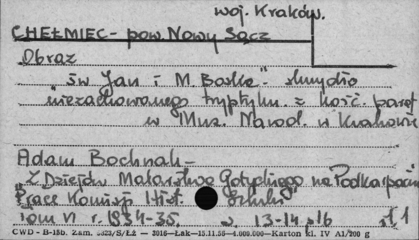 woj. Kraków.
CHEŁMIEC - pow. Nowy Sącz
Obraz
"św Jan i M. Boska" - skrzydło
niezachowanego tryptyku z kośc. paraf
w Muz. Narod. w Krakowie
Adam Bochnak -
"Z Dziejów Malarstwa Gotyckiego na Podkarpaciu
Prace Komisji Hist. Sztuki
tom VI r. 1934-35. s. 13-14, 16
CWD - B-15b. Zam. 5523/S/ŁŻ — 2016 — Łak — 15.11.55 — 4.000.000 — Karton kl. IV A1/200 g